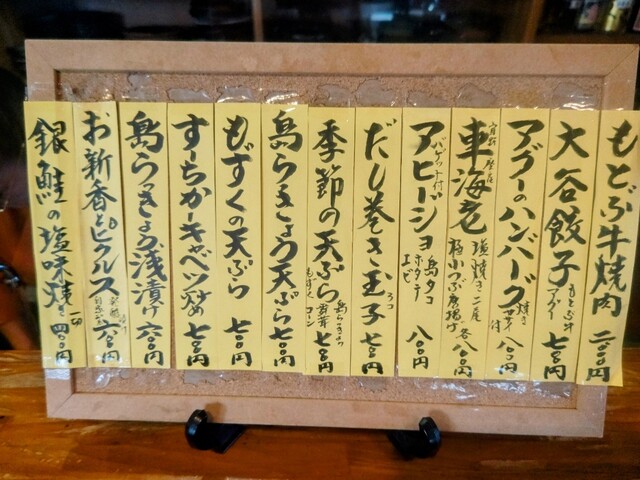 もとぶ牛焼肉 二、〇〇〇円
大谷餃子 もとぶ牛 アグー 七〇〇円
アグーのハンバーグ 焼き 付 八〇〇円
車海老 塩焼き二尾 極小つぶ唐揚げ 各八〇〇円
アヒージョ バゲット付 島タコ ホタテ エビ 八〇〇円
だし巻き玉子 七〇〇円
季節の天ぷら 島らっきょう もずく コーン 七〇〇円
島らっきょう天ぷら 七〇〇円
もずくの天ぷら 七〇〇円
すーちかーキャベツ炒め 七〇〇円
島らっきょう浅漬け 六〇〇円
お新香とピクルス 六〇〇円
銀鮭の塩味焼き 一切 四〇〇円